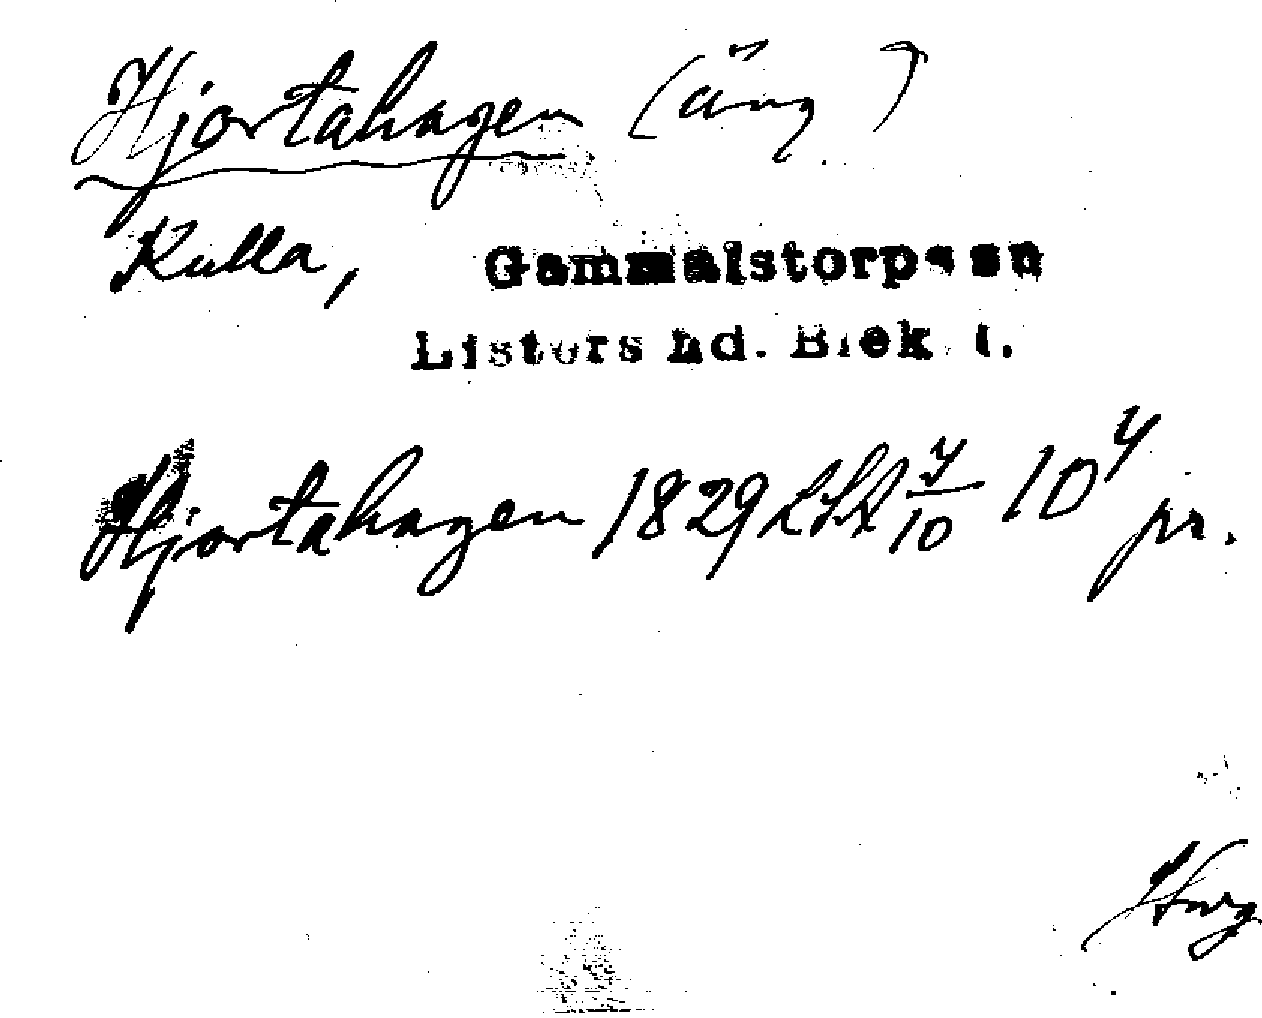 Hjortahagen (äng)
Kulla, Gammalstorps sn
Listers hd. Blek. l.
Hjortahagen 1829 LSA 7/10 10⁴ pr.